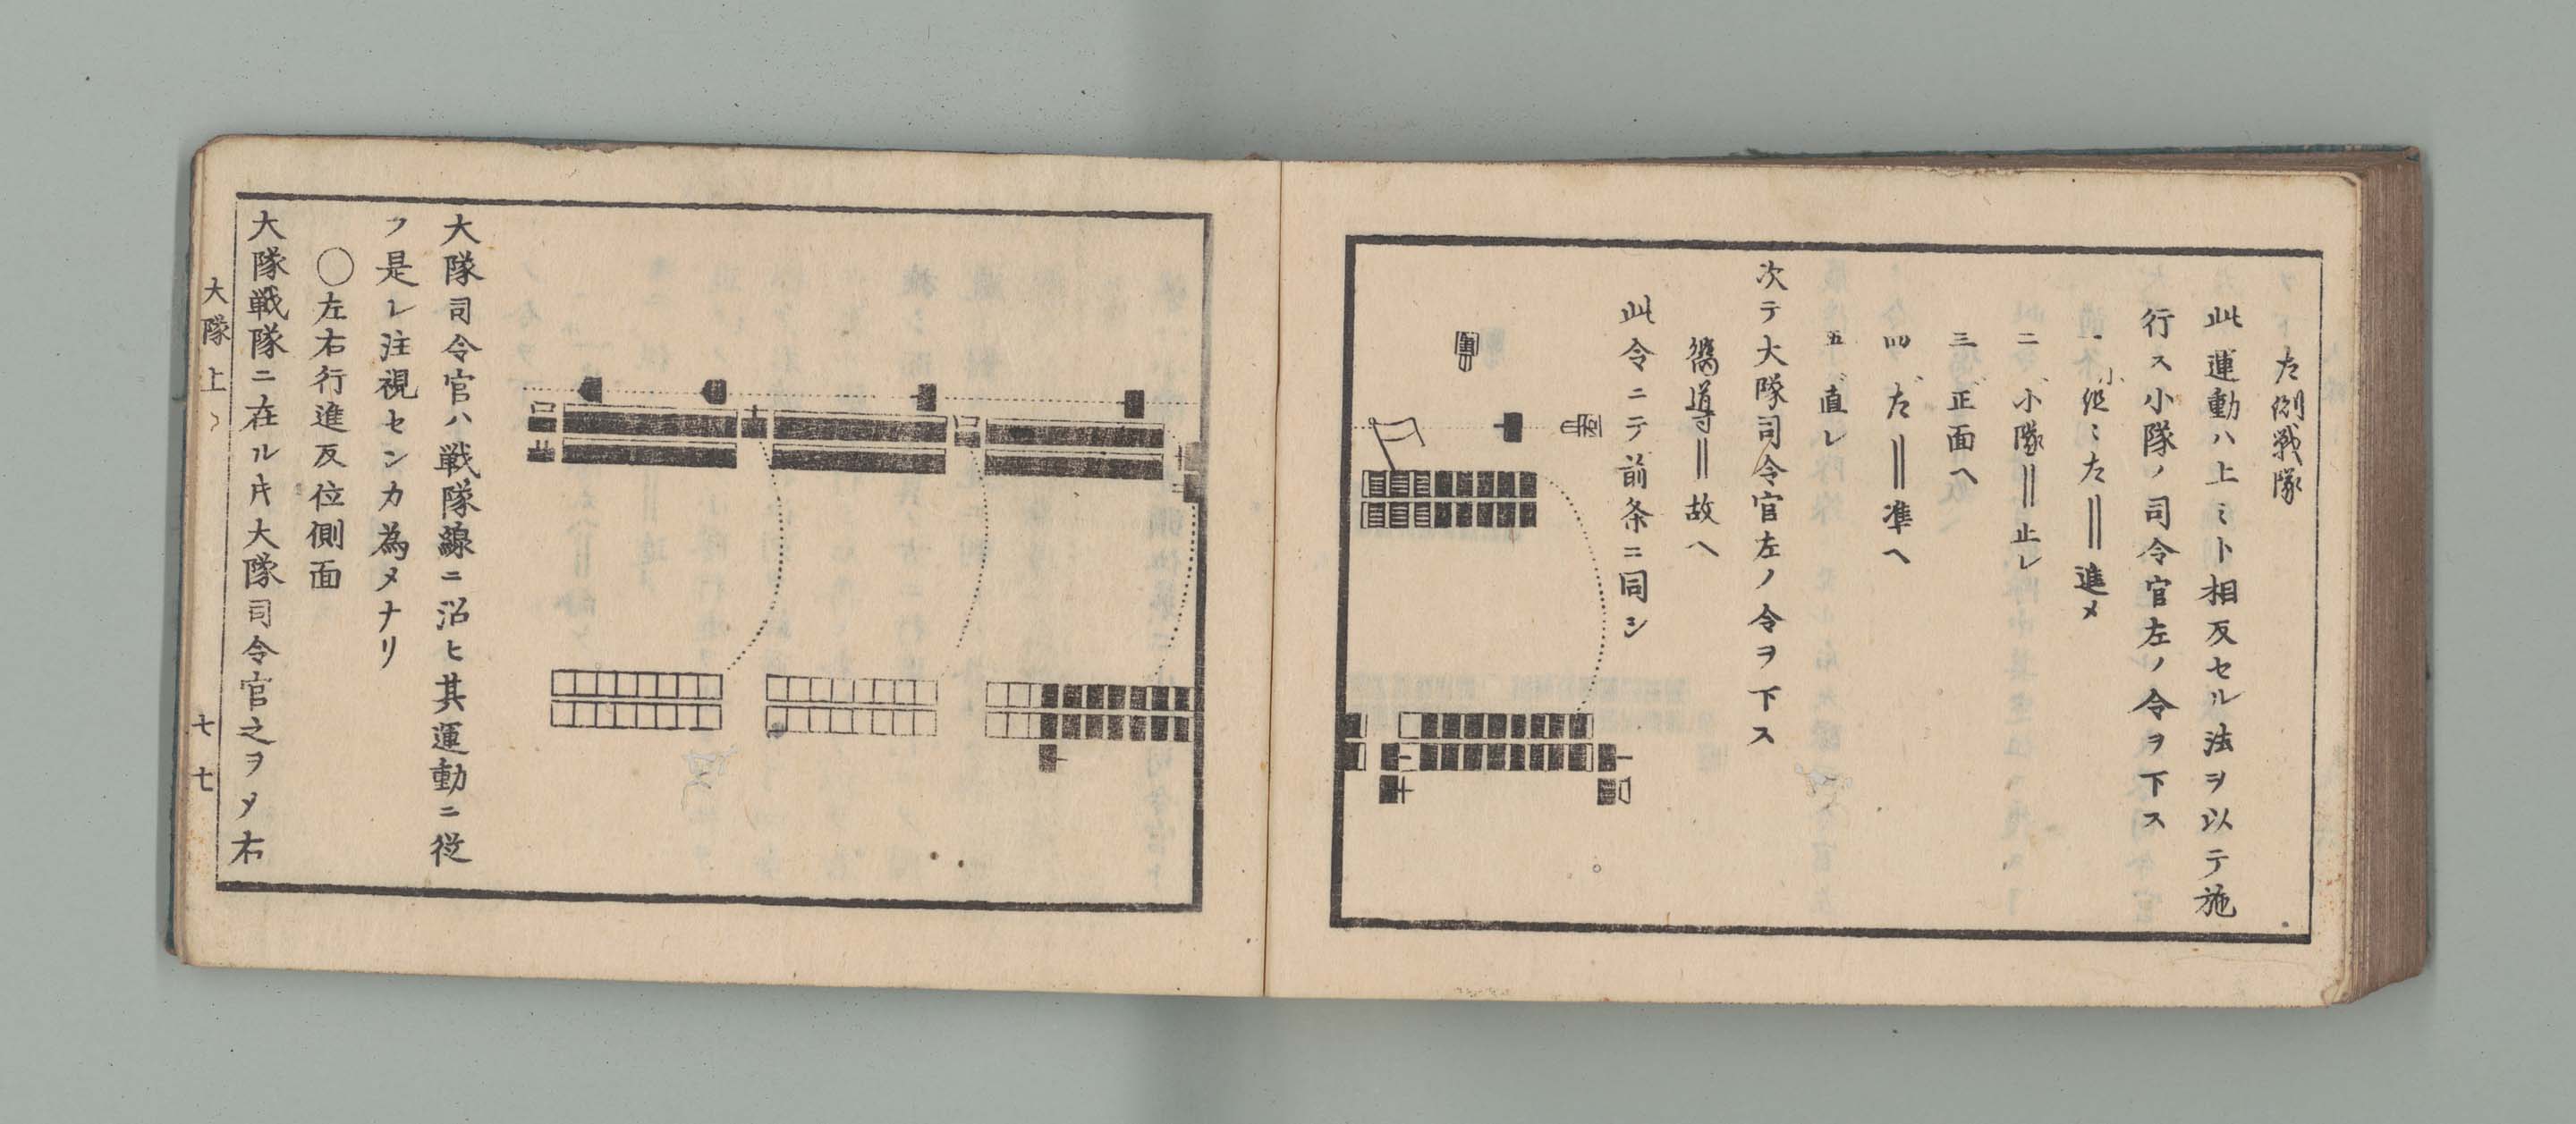 左側戦隊
此運動ハ上ミト相反セル法ヲ以テ施
行ス小隊ノ司令官左ノ令ヲ下ス
一 小組ミ左‖進メ
二 小隊‖止レ
三 正面ヘ
四 左‖準ヘ
五 直レ
次テ大隊司令官左ノ令ヲ下ス
嚮導‖故ヘ
此令ニテ前条ニ同シ
大隊司令官ハ戦隊線ニ沿ヒ其運動ニ従
フ是レ注視センカ為メナリ
○左右行進反位側面
大隊戦隊ニ在ルキ大隊司令官之ヲメ右
大隊上
七七